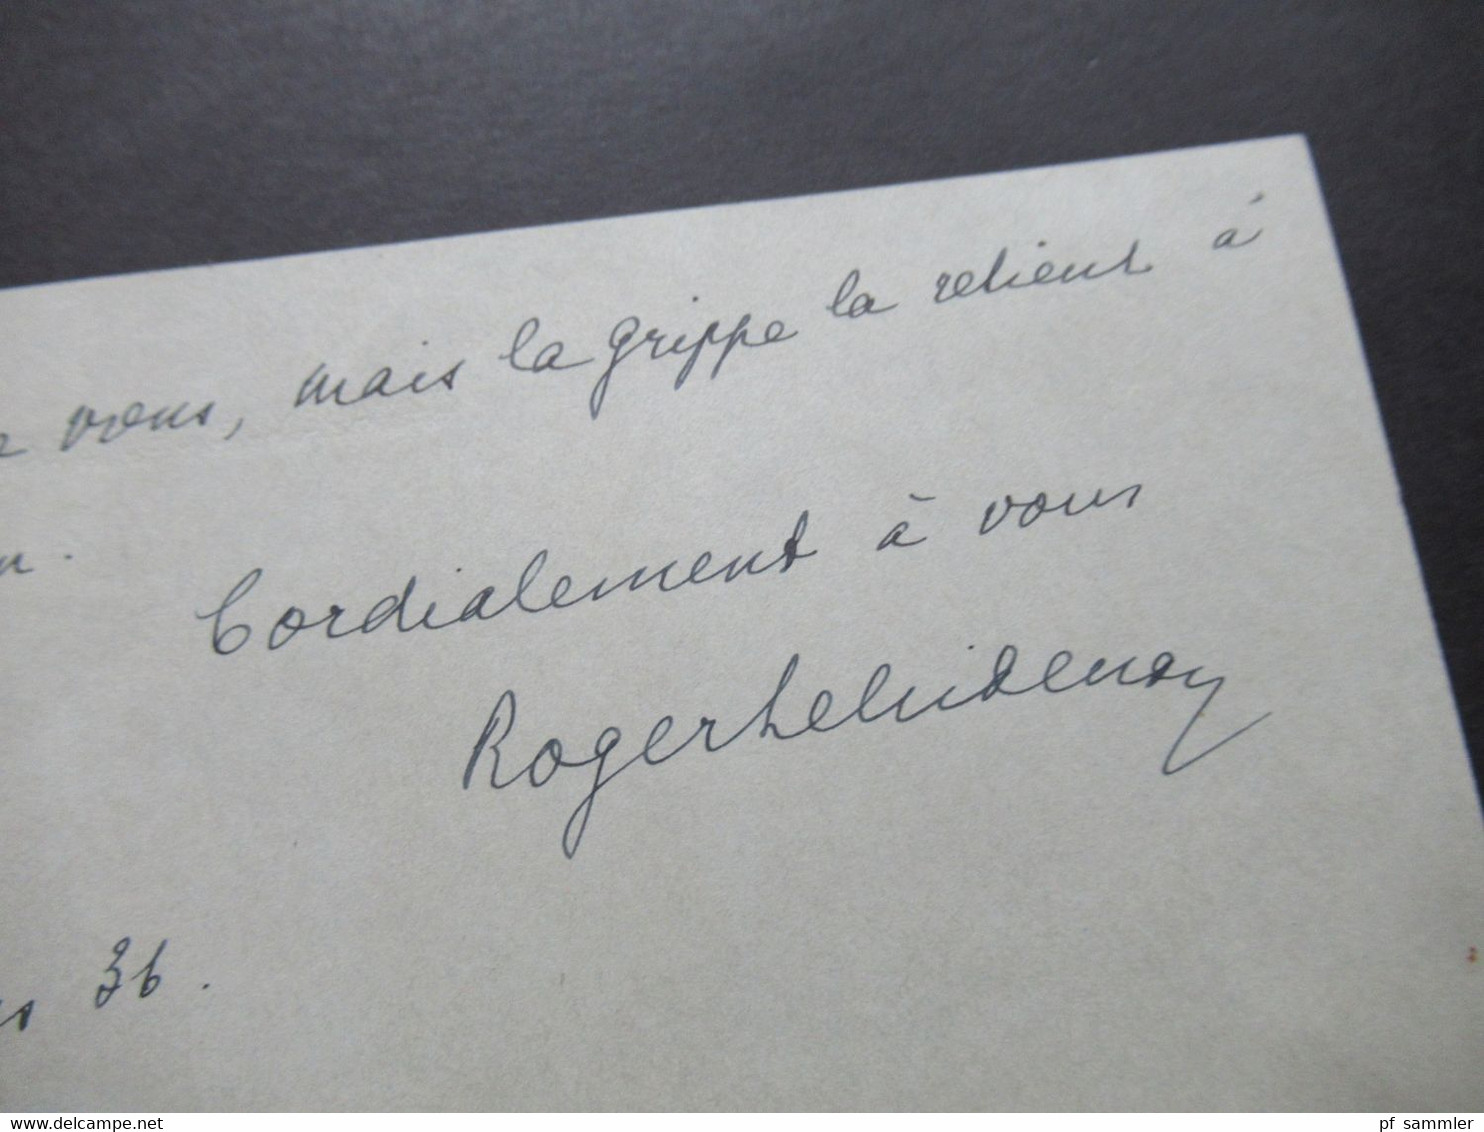 vous, mais la grippe la retient à
Cordialement à vous
Roger
36.
www.delcampe.net
pf_sammler